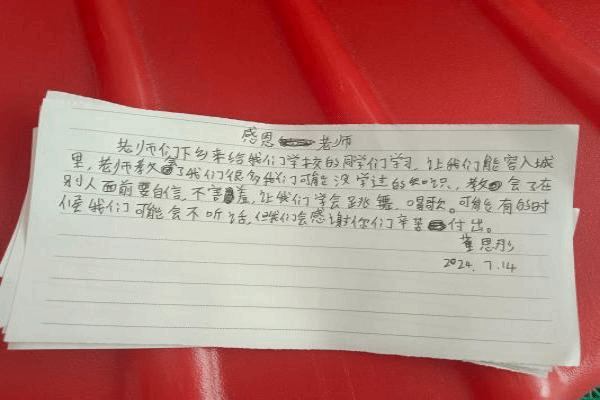 感恩老师
老师们下乡来给我们学校的同学们学习，让我们能容入城
里，老师教会了我们很多我们可能没学过的知识，教会了在
别人面前要自信，不害羞，让我们学会跳舞、唱歌。可能有的时
候我们可能会不听话，但我们会感谢你们辛苦付出。
董思彤
2024.7.14